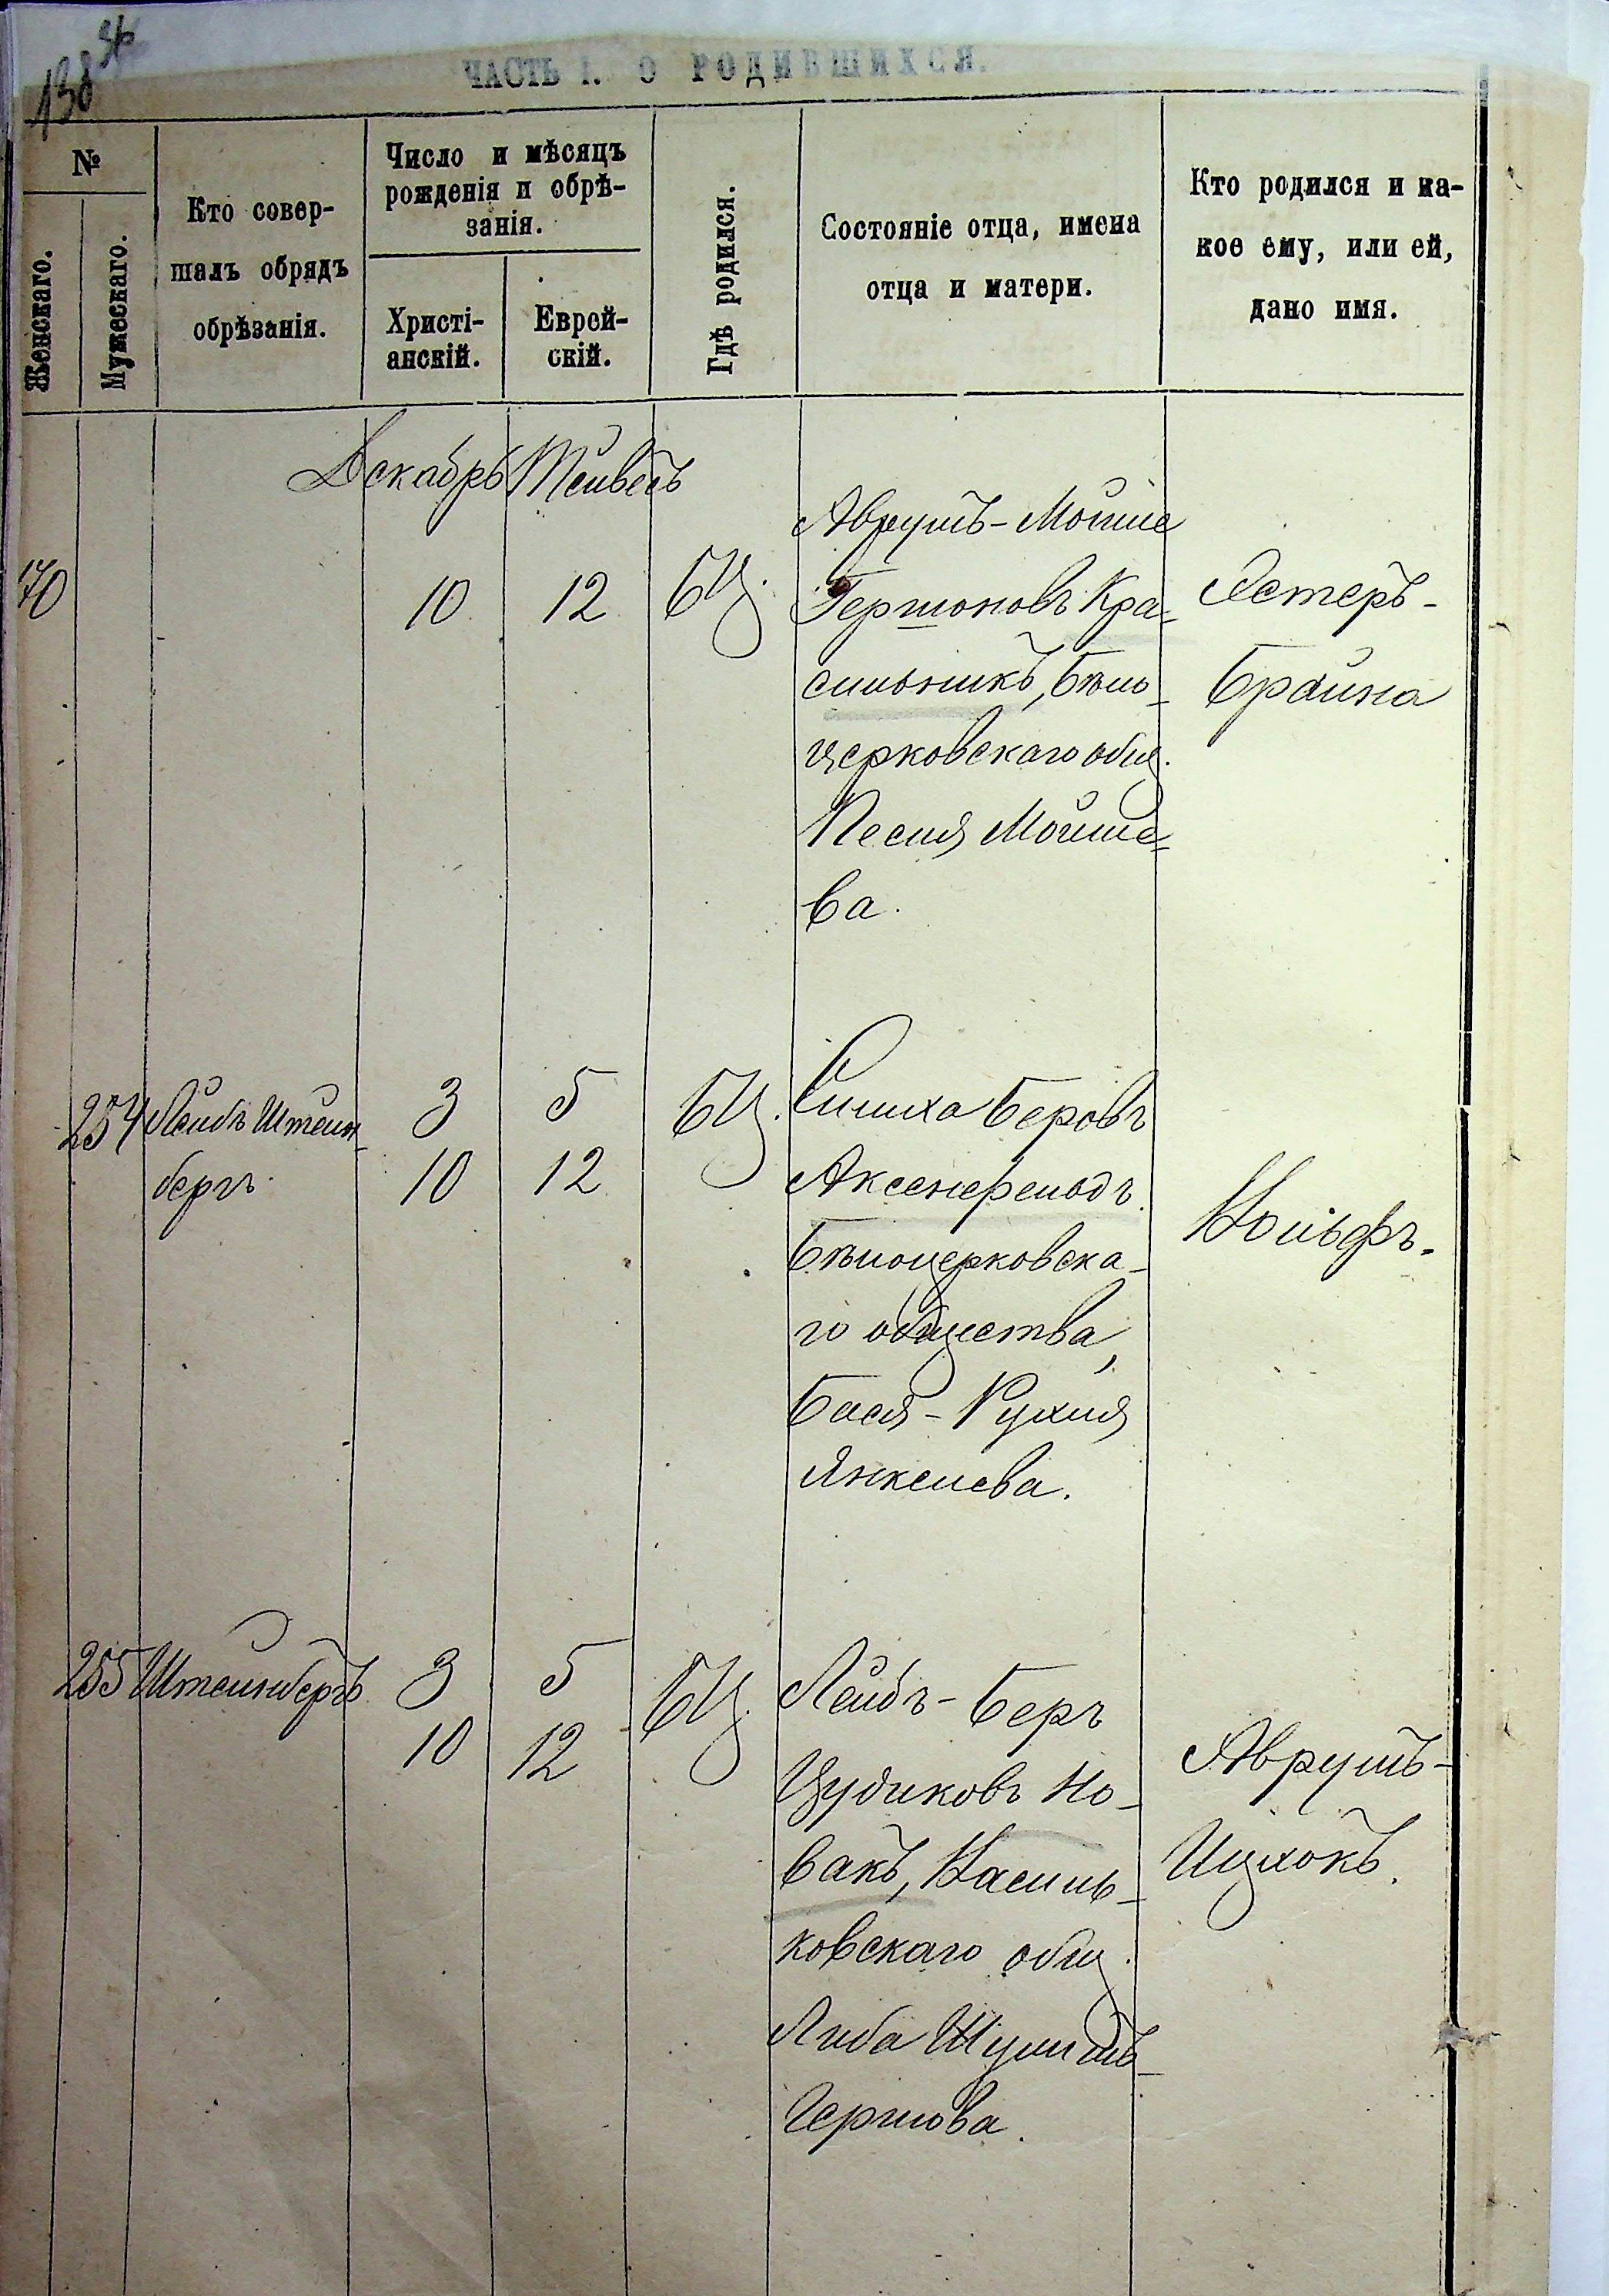 138
ЧАСТЬ I. О РОДИВШИХСЯ.
№
Женскаго.
Мужескаго.
Кто совер-
шалъ обрядъ
обрѣзанія.
Число и мѣсяцъ
рожденія и обрѣ-
занія.
Христі-
анскій.
Еврей-
скій.
Гдѣ родился.
Состояніе отца, имена
отца и матери.
Кто родился и ка-
кое ему, или ей,
дано имя.
Декабрь Тейвесъ
170
10 12 БЦ.
Аврумъ-Мойше
Гершоновъ Кра-
сильникъ, Бѣло-
церковскаго общ.
Песля Мойше-
ва.
Эстеръ-
Брайна
254 Лейбъ Штейн-
бергъ.
3 5 БЦ.
10 12
Симха Беровъ
Аксенфельдъ.
Бѣлоцерковска-
го общества,
Бася-Рухля
Янкелева.
Вольфъ.
255 Штейнбергъ
3 5 БЦ.
10 12
Лейбъ-Беръ
Цудиковъ Но-
вакъ, Василь-
ковскаго общ.
Либа
Гершова.
Аврумъ-
Ицхокъ.